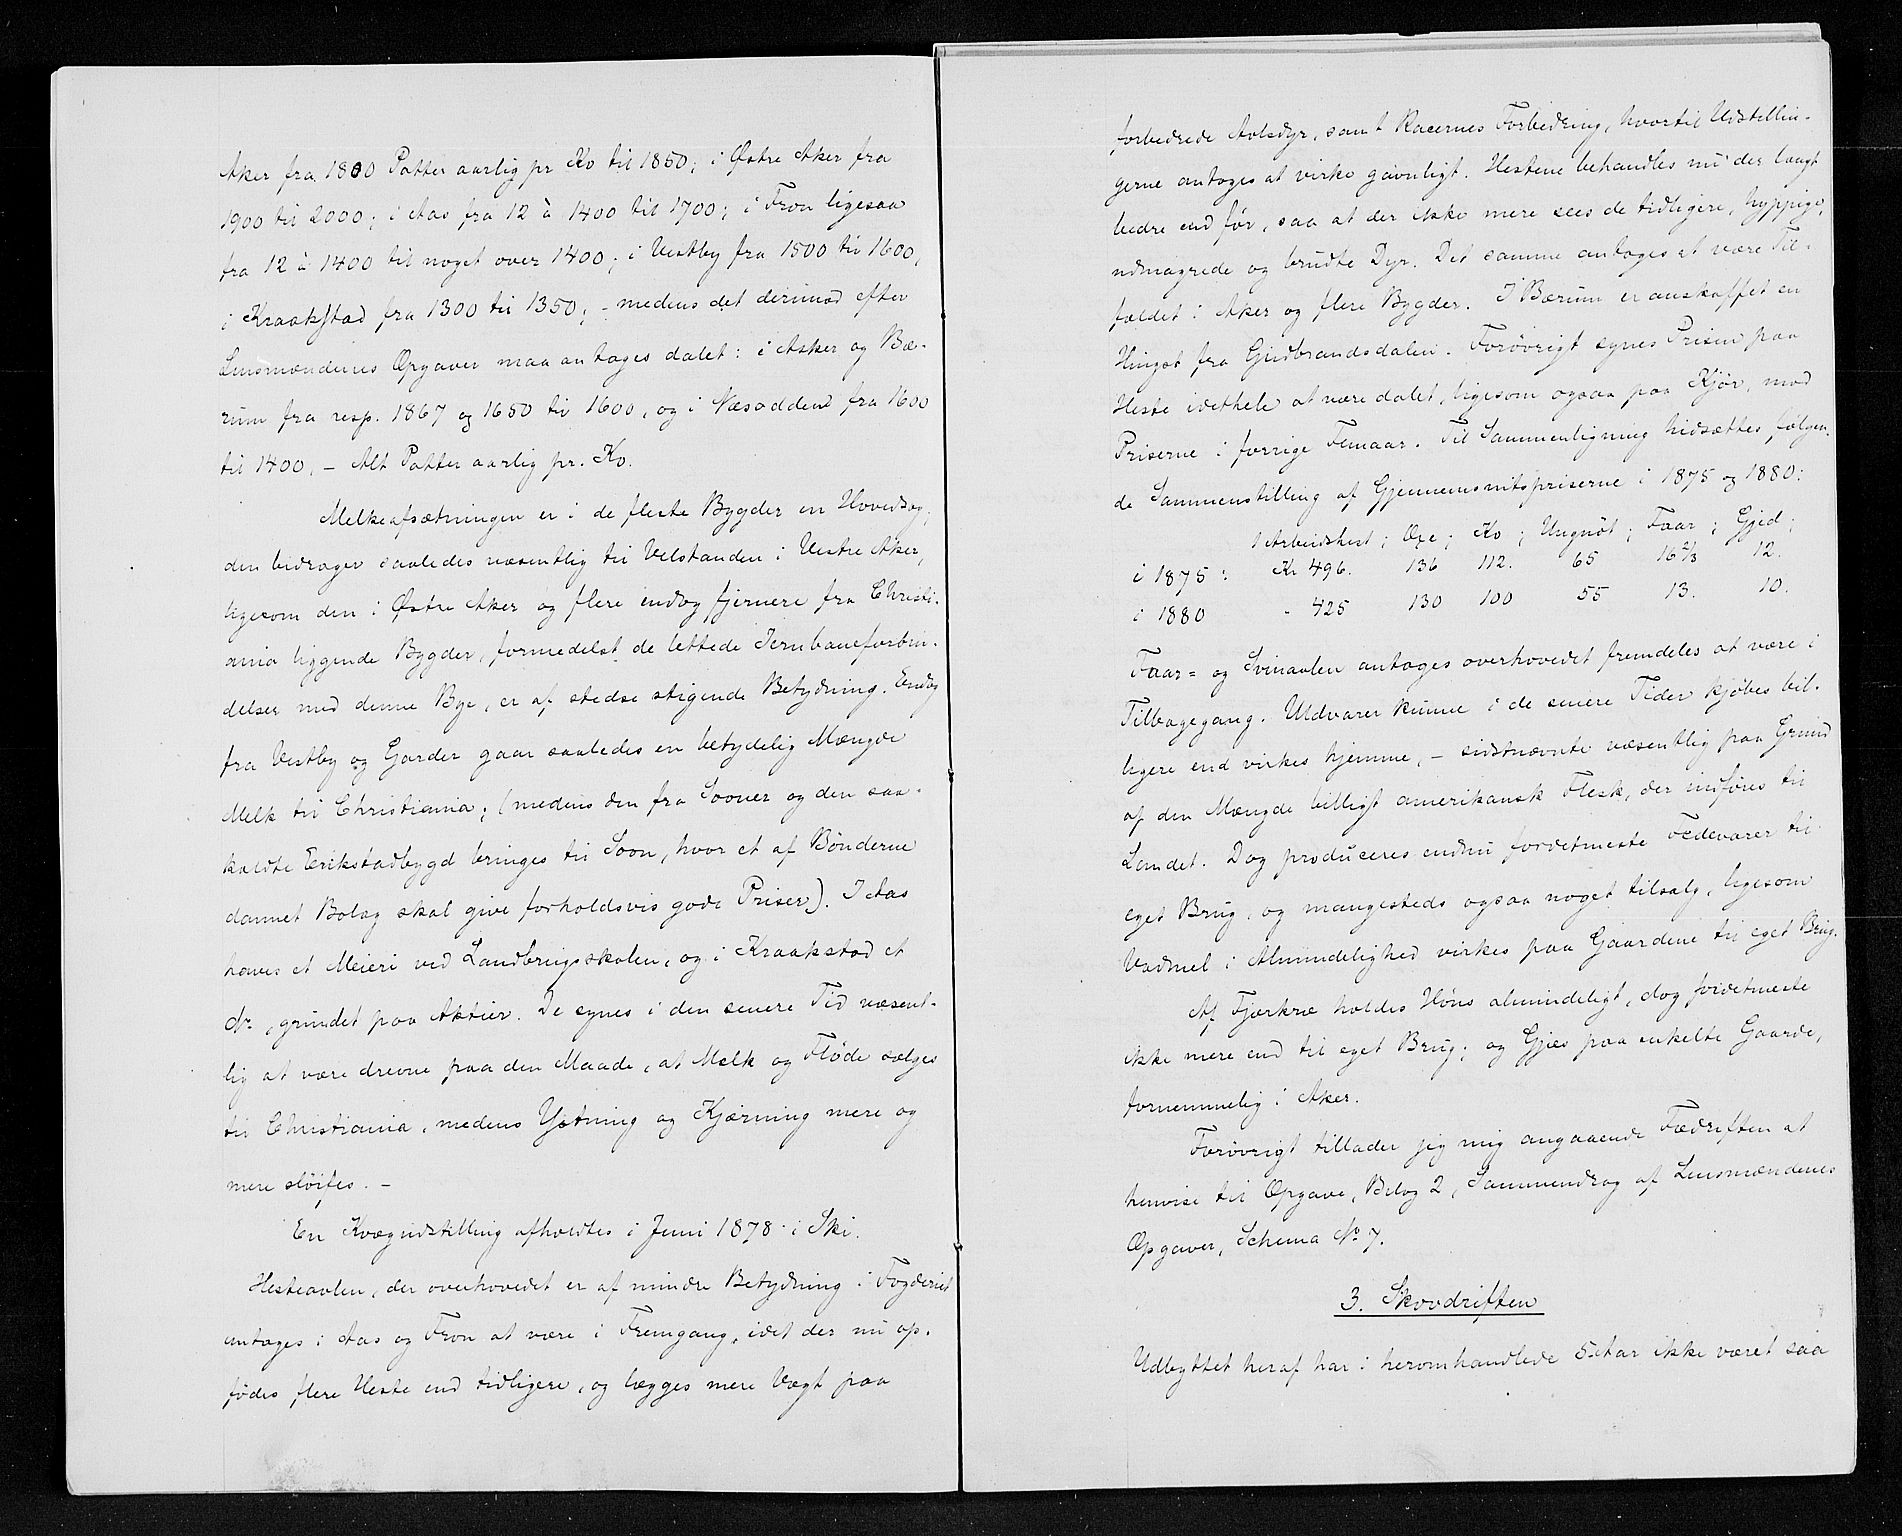 Aker fra 1800 Potter aarlig pr Ko til 1850; i Østre Aker fra
1900 til 2000; i Aas fra 12 à 1400 til 1700; i Fron ligesaa
fra 12 à 1400 til noget over 1400; i Vestby fra 1500 til 1600,
i Kraakstad fra 1300 til 1350; - medens det derimod efter
Lensmændenes Opgaver maa antages dalet: i Asker og Bæ-
rum fra resp. 1867 og 1650 til 1600, og i Næsodden fra 1600
til 1400, - Alt Potter aarlig pr. Ko.
Melkeafsætningen er i de fleste Bygder en Hovedsag;
den bidrager saaledes væsentlig til Velstanden i Vestre Aker,
ligesom den i Østre Aker og flere endog fjernere fra Christi-
ania liggende Bygder, formedelst de lettede Jernbaneforbin-
delser med denne Bye, er af stedse stigende Betydning. Endog
fra Vestby og Garder gaar saaledes en betydelig Mængde
Melk til Christiania; (medens den fra Sooner og den saa-
kaldte Erikstadbygd bringes til Soon, hvor et af Bønderne
dannet Bolag skal give forholdsvis gode Priser). I Aas
haves et Meieri ved Landbrugsskolen, og i Kraakstad et
do, grundet paa Aktier. De synes i den senere Tid væsent-
lig at være drevne paa den Maade, at Melk og Fløde sælges
til Christiania, medens Ystning og Kjærning mere og
mere sløifes. -
En Kvægudstilling afholdtes i Juni 1878 i Ski.
Hesteavlen, der overhovedet er af mindre Betydning i Fogderiet
antages i Aas og Fron at være i Fremgang, idet der nu op-
fødes flere Heste end tidligere, og lægges mere Vægt paa
forbedrede Avlsdyr, samt Racernes Forbedring, hvortil Udstillin-
gerne antages at virke gavnligt. Hestene behandles nu der langt
bedre end før, saa at der ikke mere sees de tidligere, hyppige,
udmagrede og brudte Dyr. Det samme antages at være Til-
fældet i Aker og flere Bygder. I Bærum er anskaffet en
Hingst fra Gudbrandsdalen. Forøvrigt synes Prisen paa
Heste idethele at være dalet, ligesom ogsaa paa Kjør, mod
Priserne i forrige Femaar. Til Sammenligning hidsættes følgen-
de Sammenstilling af Gjennemsnitspriserne i 1875 og 1880:
1 Arbeidshest; Oxe; Ko; Ungnøt; Faar; Gjed;
i 1875: Kr 496. 136 112. 65 16 2/3 12.
i 1880 - 425 130 100 55 13. 10.
Faar- og Svinavlen antages overhovedet fremdeles at være i
Tilbagegang. Uldvarer kunne i de senere Tider kjøbes bil-
ligere end virkes hjemme, - sidstnævnte væsentlig paa Grund
af den Mængde billigt amerikansk Flesk, der indføres til
Landet. Dog produceres endnu fordetmeste Fedevarer til
eget Brug, og mangesteds ogsaa noget tilsalg, ligesom
Vadmel i Almindelighed virkes paa Gaardene til eget Brug.
Af Fjærkræ holdes Høns almindeligt, dog fordetmeste
ikke mere end til eget Brug; og Gjæs paa enkelte Gaarde,
fornemmelig i Aker.
Forøvrigt tillader jeg mig angaaende Fædriften at
henvise til Opgave, Bilag 2, Sammendrag af Lensmændenes
Opgaver, Schema No 7.
3. Skovdriften
Udbyttet heraf har i heromhandlede 5 Aar ikke været saa